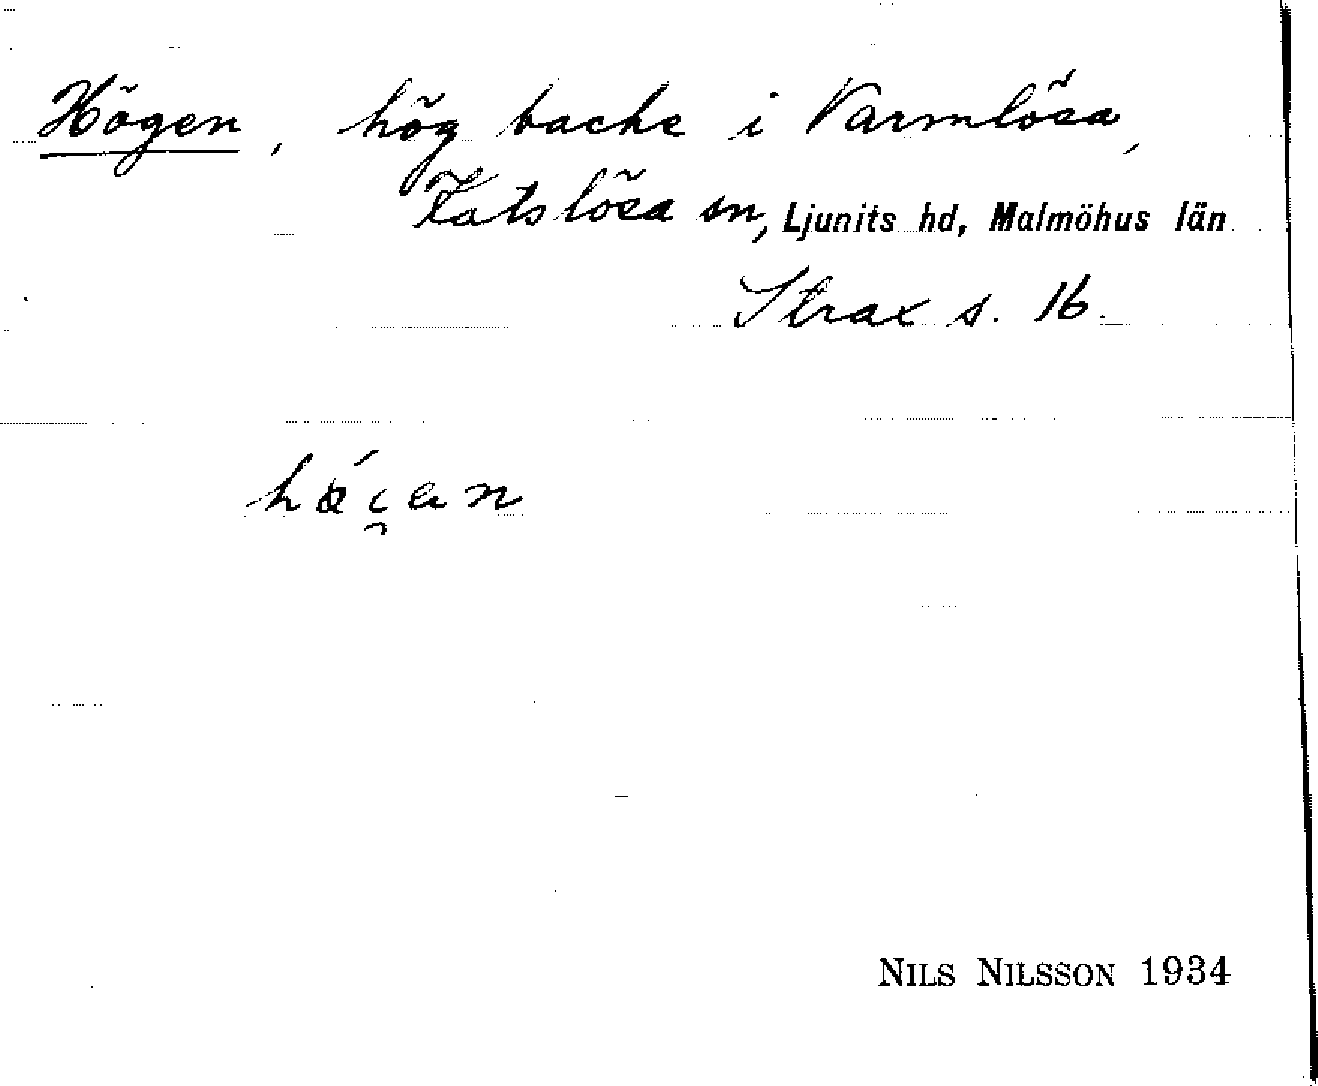 Högen, hög backe i Varmlösa,
Katslösa sn, Ljunits hd, Malmöhus län
Strax s. 16.
NILS NILSSON 1934